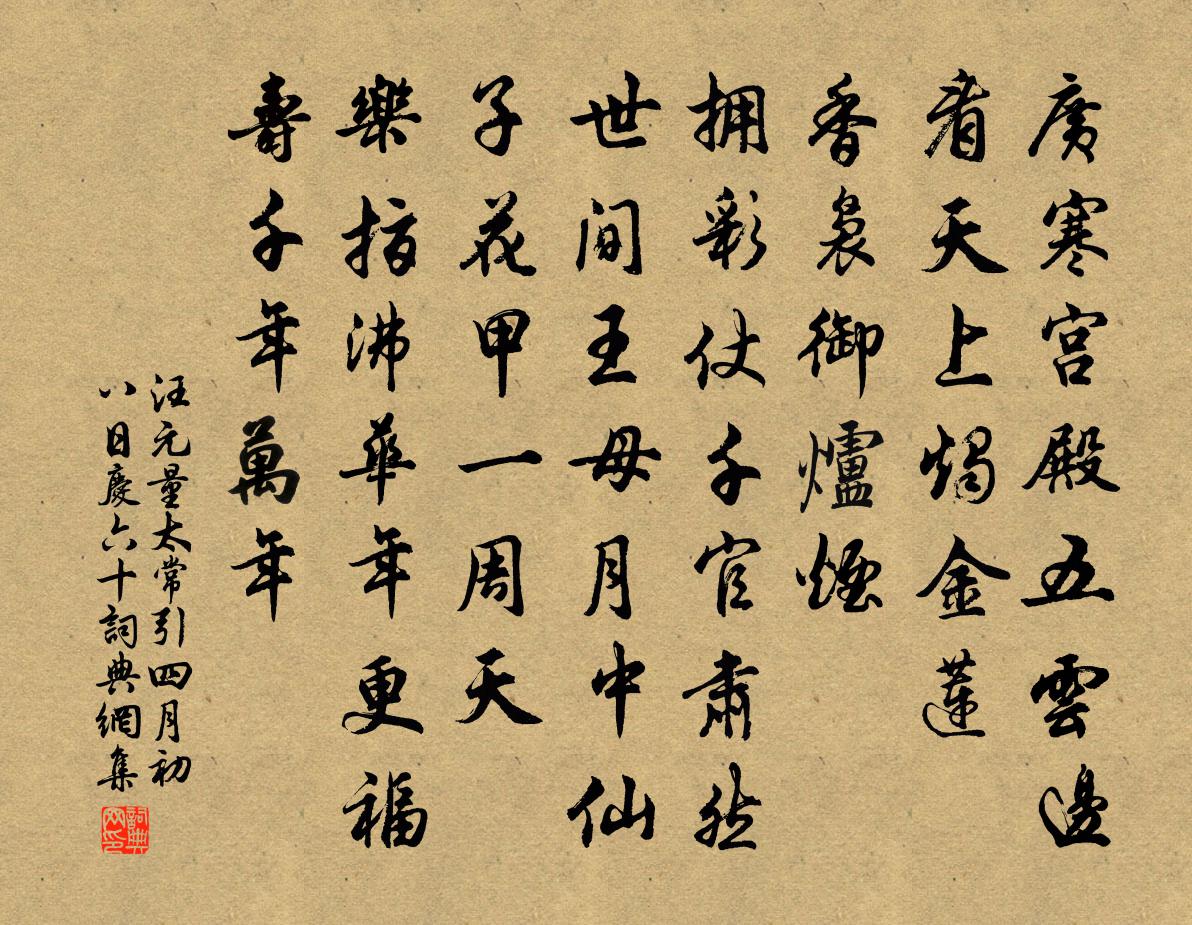 廣寒宮殿五雲邊
看天上燭金蓮
香裊御爐煙
拥彩仗千官肅然
世間王母月中仙
子花甲一周天
樂指沸華年更福
壽千年萬年
汪元量太常引四月初
八日慶六十詞典網集
詞典
网印